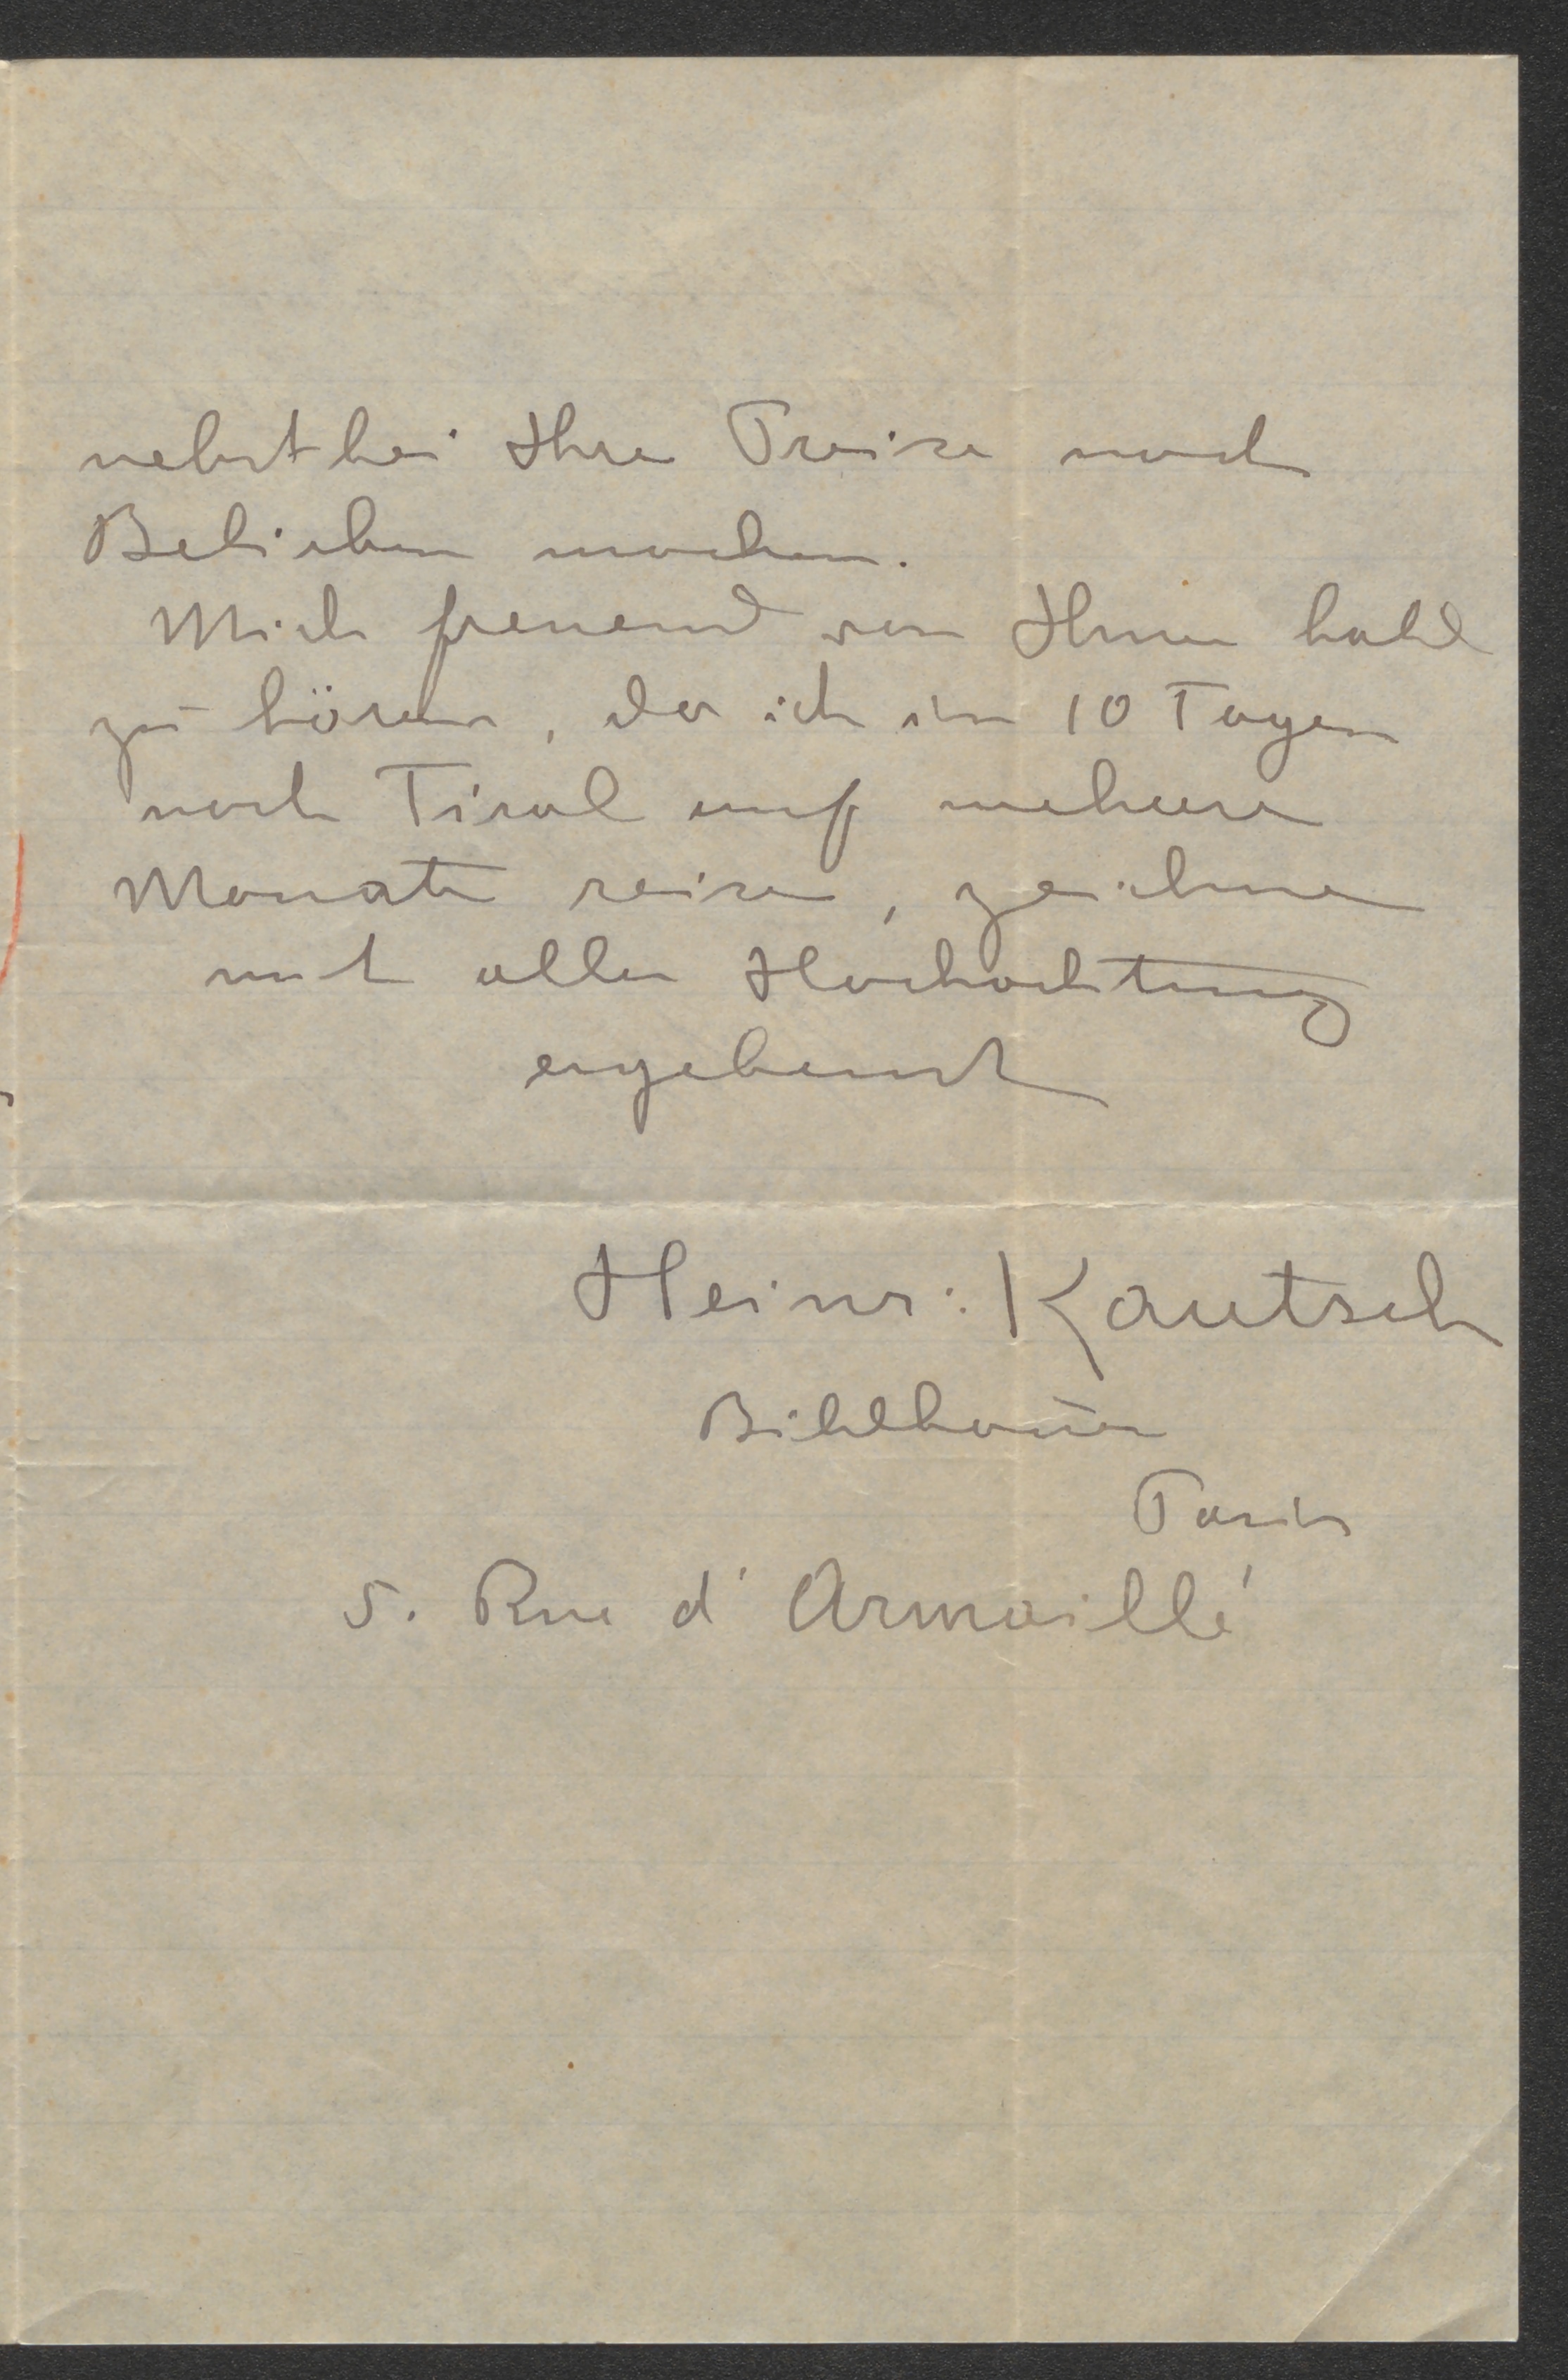 nebstbei Ihre Preise nach
Belieben machen.
Mich freuend von Ihnen bald
zu hören, da ich in 10 Tagen
nach Tirol auf mehrere
Monate reise, zeichne
mit aller Hochachtung
ergebenst
Heinr: Kautsch
Bildhauer
Paris
5. Rue d'Armaillé